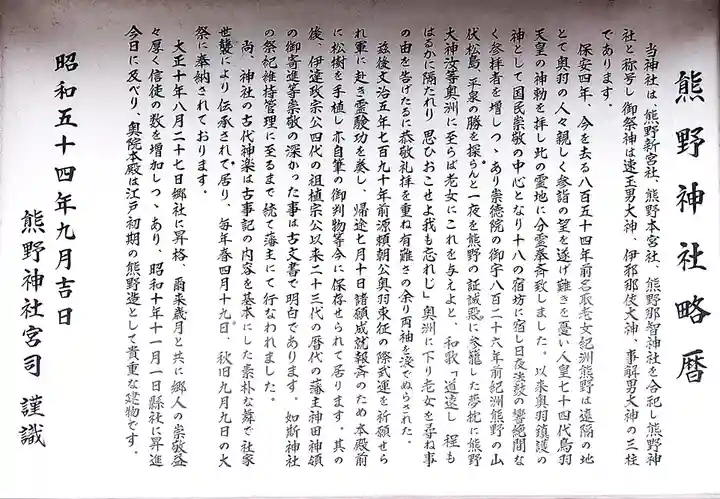 熊野神社略暦
当神社は、熊野新宮社、熊野本宮社、熊野那智神社を合祀し熊野神
社と称号し御祭神は速玉男大神、伊邪那使大神、事解男大神の三柱
であります。
保安四年、今を去る八百五十四年前名取老女紀洲熊野は遠隔の地
とて奥羽の人々親しく参詣の望を遂げ難きを憂い人皇七十四代鳥羽
天皇の神勅を拝し此の霊地に分霊奉斎致しました。以来奥羽鎮護の
神として国民崇敬の中心となり十八の宿坊に宿し日夜法鼓の響絶間な
く参拝者を増しつゝあり崇徳院の御宇八百二十六年前紀洲熊野の山
伏松島、平泉の勝を探らんと一夜を熊野の証誠殿に参籠した夢枕に熊野
大神汝等奥洲に至らば老女にこれを与えよと、和歌「道遠し 程も
はるかに隔たれり 思ひおこせよ我も忘れじ」奥洲に下り老女を尋ね事
の由を告げたるに恭敬礼拝を重ね有難さの余り両袖を涙でぬらされた。
茲後文治五年七百九十年前源頼朝公奥羽東征の際武運を祈願せら
れ軍に赴き霊験功を奏し、帰途七月十日諸願成就報斉のため本殿前
に松樹を手植し亦自筆の御判物等今に保存せられて居ります。其の
後、伊達政宗公四代の祖植宗公以来二十三代の暦代の藩主神田神領
の御寄進等崇敬の深かった事は古文書で明白であります。如斯神社
の祭祀維持管理に至るまで続て藩主にて行なわれました。
尚、神社の古代神楽は古事記の内容を基本にした素朴な舞で社家
世襲により伝承されて居り、毎年春四月十九日、秋旧九月九日の大
祭に奉納されております。
大正十年八月二十七日郷社に昇格、爾来歳月と共に郷人の崇敬益
々厚く信徒の数を増加しつゝあり、昭和十年十一月一日縣社に昇進
今日に及べり、奥院本殿は江戸初期の熊野造として貴重な建物です。
昭和五十四年九月吉日
熊野神社宮司 謹識